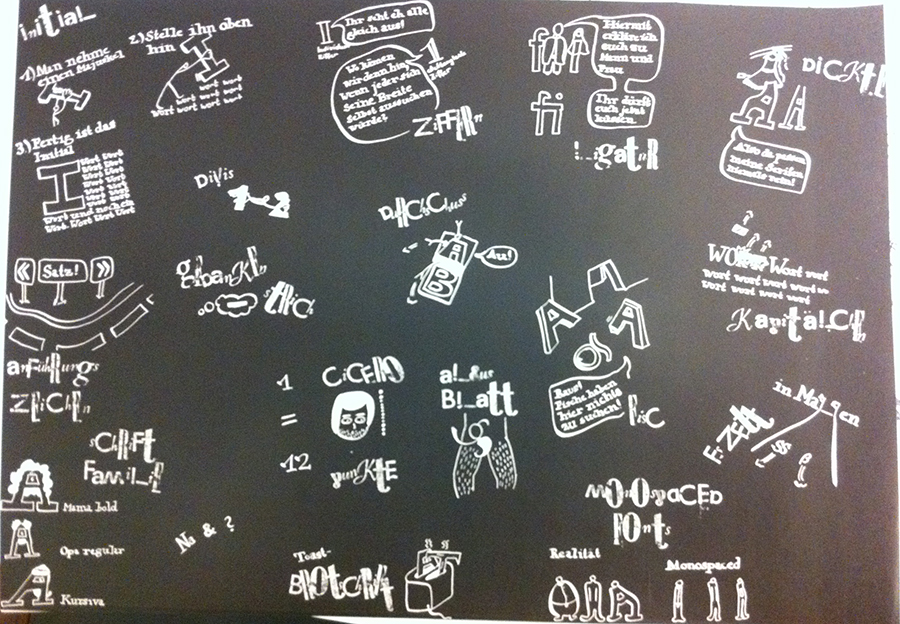 Initial
1) Man nehme
einen Majuskel
2) Stelle ihn oben
hin
Wort Wort Wort
Wort Wort Wort
3) Fertig ist das
Initial
I
Wort Wort
Wort Wort
Wort Wort
Wort Wort
Wort Wort
Wort und nochein
Wort. Wort Wort Wort
Ihr seht eh alle
gleich aus!
Wo kämen
wir denn hin
wenn jeder sich
seine Breite
selbst aussuchen
würde?
1
Ziffern
Hiermit
erkläre ich
euch zu
Mann und
Frau
fi
Ihr dürft
euch jetzt
küssen
Ligatur
Dickte
A A
Also da passen
meine Serifen
niemals rein!
Divis
Durchschuss
A
B
Au!
« Satz! »
Anführungs
Zeichen
Gedanken
Wort Wort Wort
Wort wort wort wort
Wort wort wort wort
Kapitälchen
A A A
Raus!
Fische haben
hier nichts
zu suchen!
1
=
12
Cicero
Punkte
Aldus
Blatt
in Magen
Schrift
Familie
A
Mama bold
A
Opa regular
A
Kursiva
Na & ?
Toast-
Brotschrift
Monospaced
Fonts
Realität
Monospaced